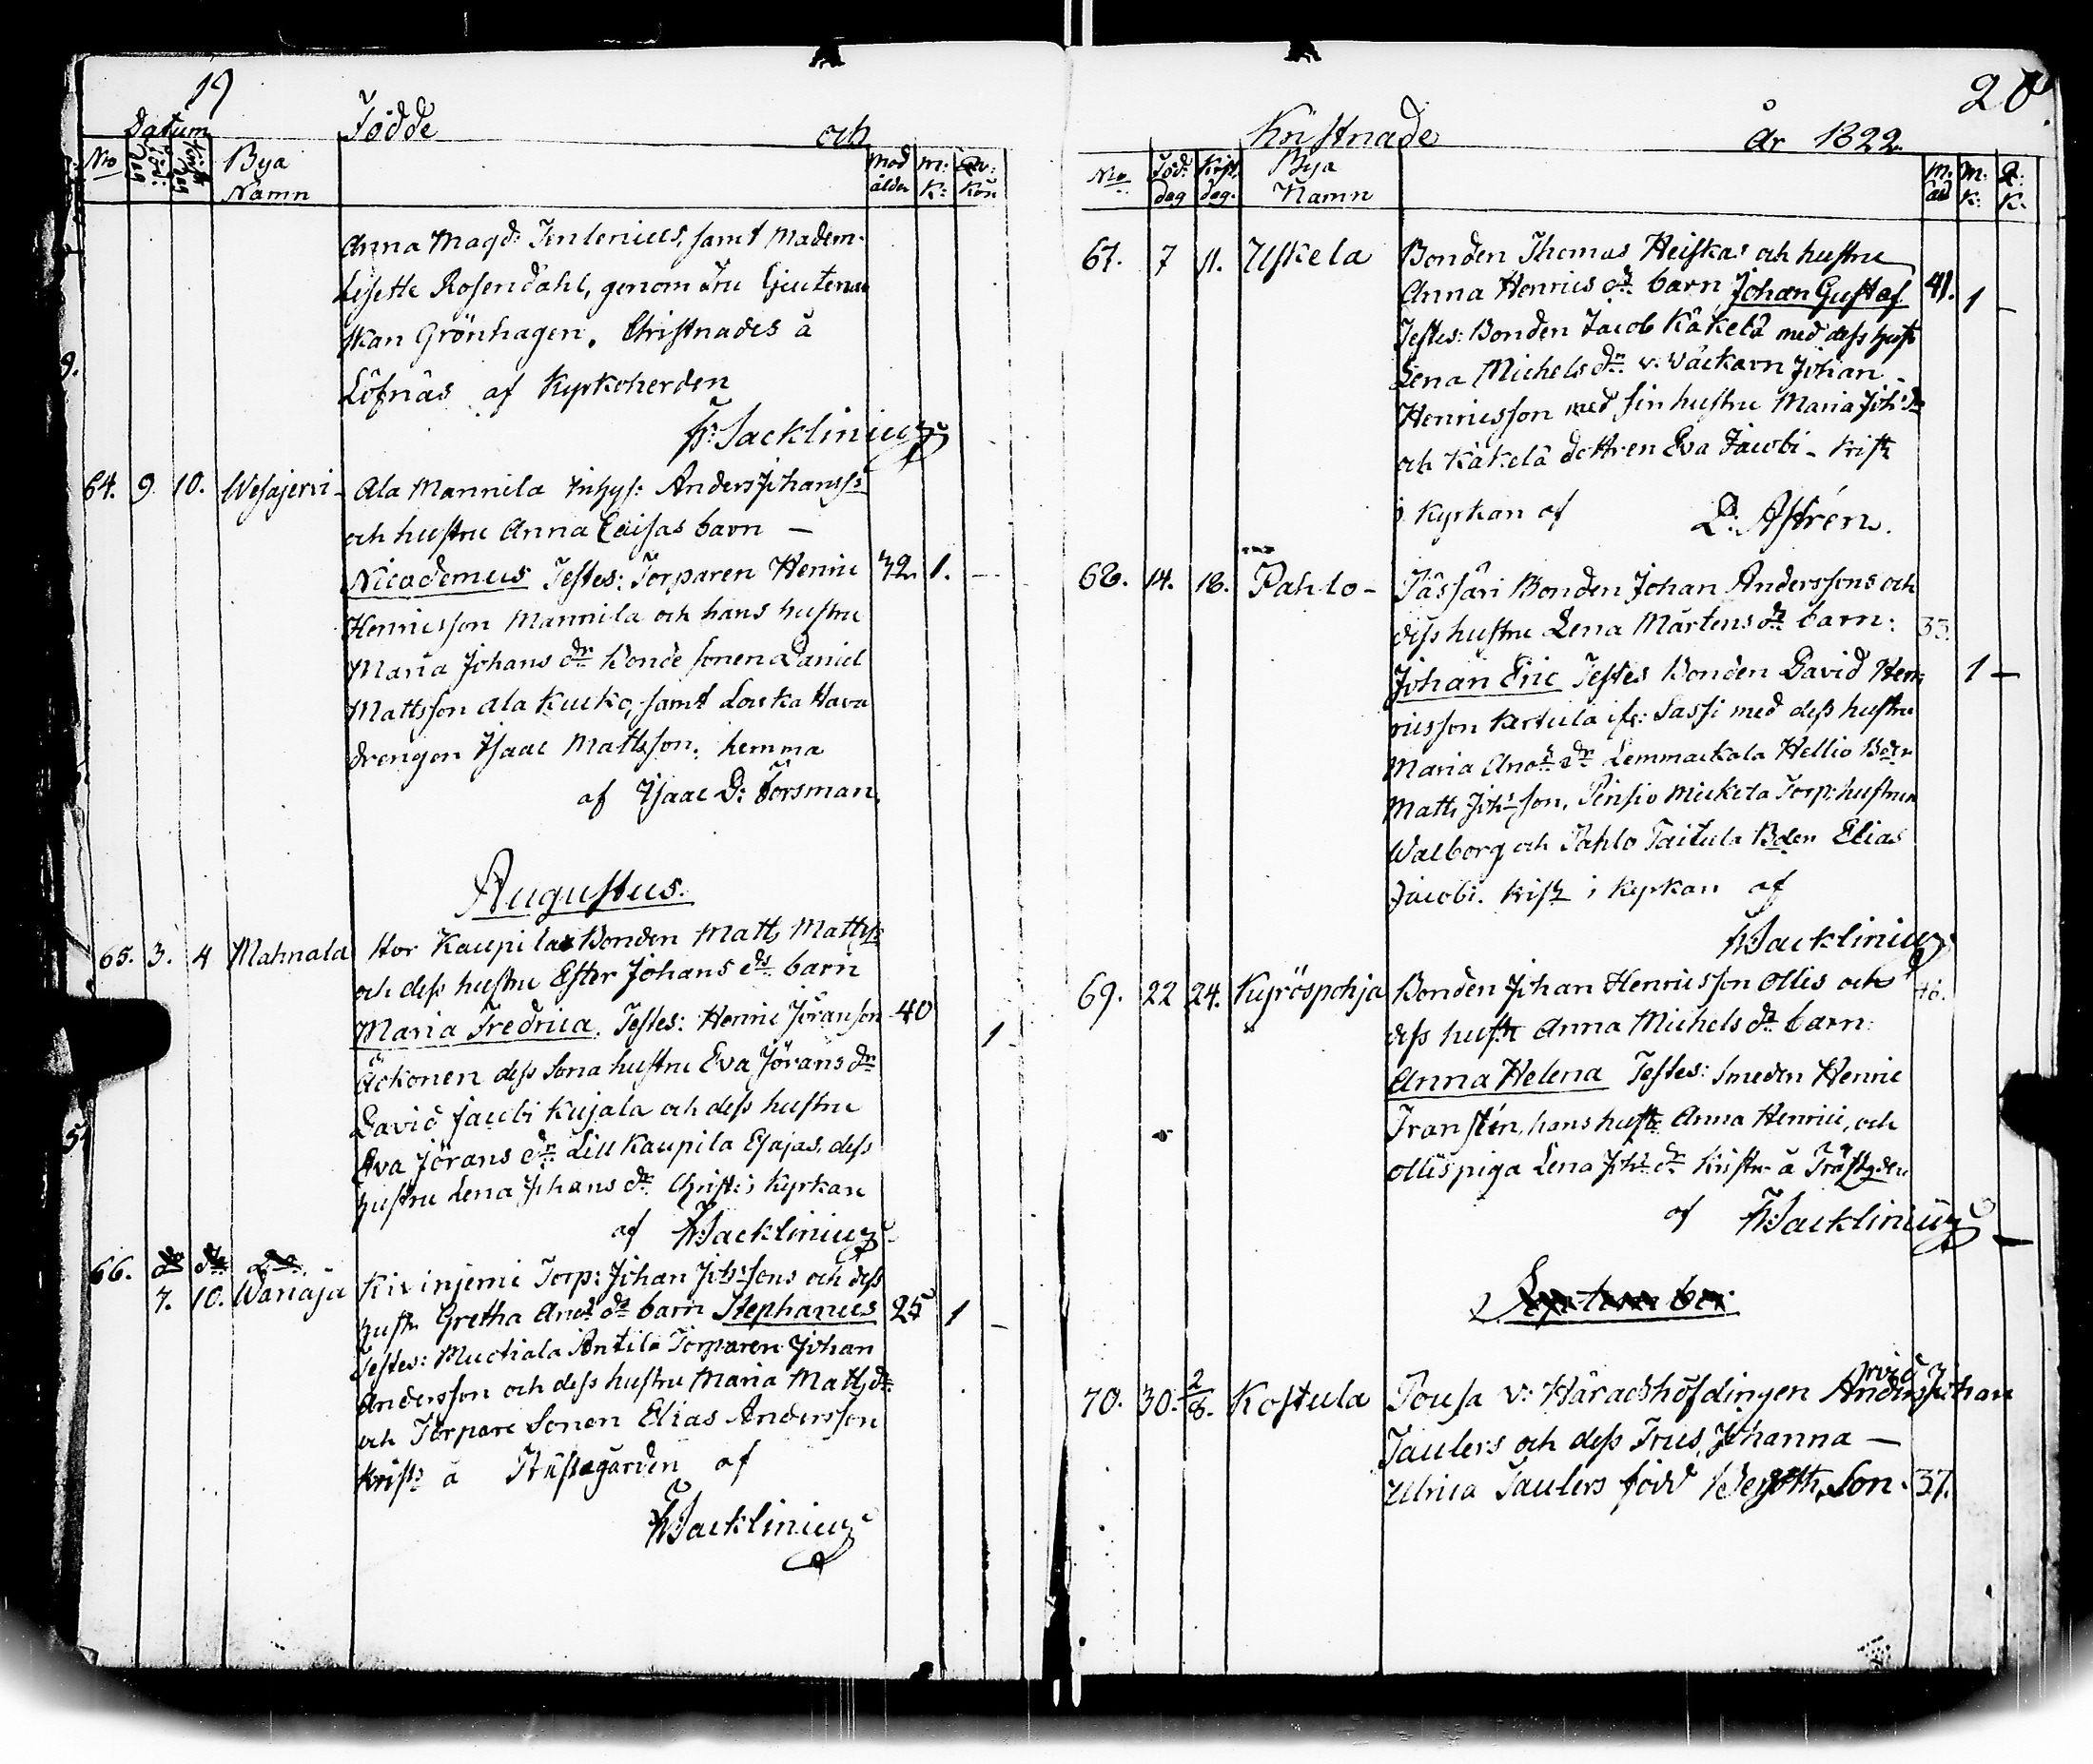 19
Datum Födde och
No Bya Namn Mod ålder M: K: Qv: Kön
Anna Magd: Jenlenius, samt Madem.
Lisette Rosendahl, genom Fru Gjutena
skan Grönhagen. Christnades å
Löfnäs af Kyrkoherden
Fr: Sacklinius
64. 9. 10. Wesajervi - Ala Mannila inhys: Anders Johanss:
och hustru Anna Caisas barn —
Nicodemus Testes: Torparen Henric 32. 1. —
Henricsson Mannila och hans hustru
Maria Johans dr Bonde sonen Daniel
Mattsson Ala Kuko, samt Louka Hara
drengen Isaac Mattsson. hemma
af Isaac D: Forsman.
Augustus.
65. 3. 4 Mahnala Stor Kaupila Bonden Matts Mattss
och dess hustru Ester Johans dr barn
Maria Fredrica. Testes: Henric Jöranson 40 1
Äckonen dess Sona hustru Eva Jörans dr
David Jacobi Kujala och dess hustru
Eva Jörans dr Lill Kaupila Esajas, dess
hustru Lena Johans dr. Christ: i Kyrkan
af Fr: Sacklinius
66. do do Do.
7. 10. Wanaja Kivinjemi Torp: Johan Joh:sons och dess
hustr Gretha And: dr barn Stephanus 25 1 —
Testes: Muotiala Antila Torparen Johan
Andersson och dess hustru Maria Matts dr.
och Torpare Sonen Elias Andersson
Krist: å Prästegården af
Fr: Sacklinius
20.
Kristnade År 1822.
No Föd: dag Krist. dag. Bya Namn M. ald M: K: Q: K.
67. 7 11. Uskela Bonden Thomas Heiskas och hustru
Anna Henrics dr. barn Johan Gustaf 41. 1 —
Testes: Bonden Jacob Käkelä med dess hust
Lena Michels dr. v. Väckarn Johan
Henricsson med sin hustru Maria Joh: dr
och Käkelä dottren Eva Jacobi - krist
i Kyrkan af D: Aströn.
68. 14. 18. Pahlo - Jässäri Bonden Johan Anderssons och
dess hustru Lena Mårtens dr barn: 33.
Johan Eric Testes Bonden David Hen 1 —
ricsson Kertula if: Sassi med dess hustru
Maria And: dr Lemmackala Hellio Bden
Matts Joh:son, Pinsio Mickela Torp: hustrun
Walborg och Pahlo Taitula Bden Elias
Jacobi. krist i Kyrkan af
Fr: Sacklinius
69. 22 24. Kyröspohja Bonden Johan Henricsson Ollis och 40.
dess hustr Anna Michels dr barn:
Anna Helena Testes: Smeden Henric
Transtén, hans hustr Anna Henrici, och
Ollis piga Lena Joh: dr Kristn å Prästgden
af Fr: Sacklinius —
September
70. 30. 2/8. Kostula Pousa v: Häradshöfdingen Arvid Johan
Taulers och dess Frus, Johanna —
Ulrica Taulers född Son. 37.